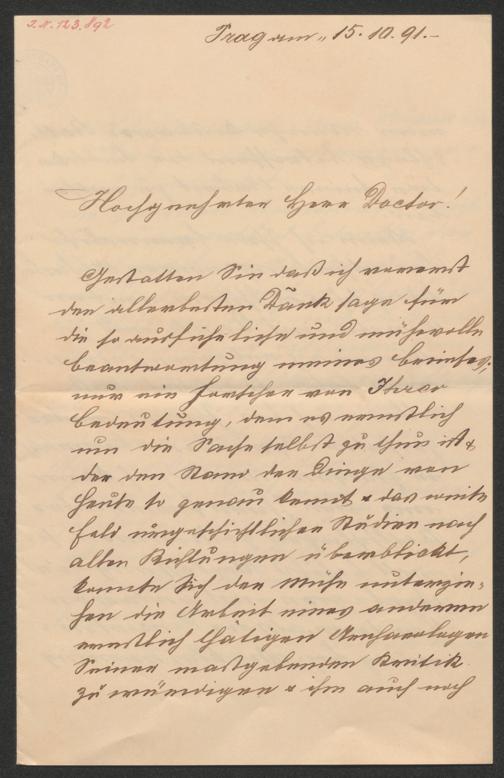 I.N. 123.892
Prag am 15. 10. 91.–
Hochgeehrter Herr Doctor!
Gestatten Sie daß ich vorerst
den allerbesten Dank sage für
die so ausführliche und mühevolle
beantwortung meines briefes;
nur ein Forscher von Ihrer
bedeutung, dem es ernstlich
um die Sache selbst zu thun ist &
der den Stand der Dinge von
heute so genau kennt & das weite
Feld urgeschichtlicher Studien nach
allen Richtungen überblickt,
konnte Sich der Mühe unterzie-
hen die Arbeit eines anderen
ernstlich thätigen Archaeologen
Seiner maßgebenden Kritik
zu würdigen & ihm auch noch